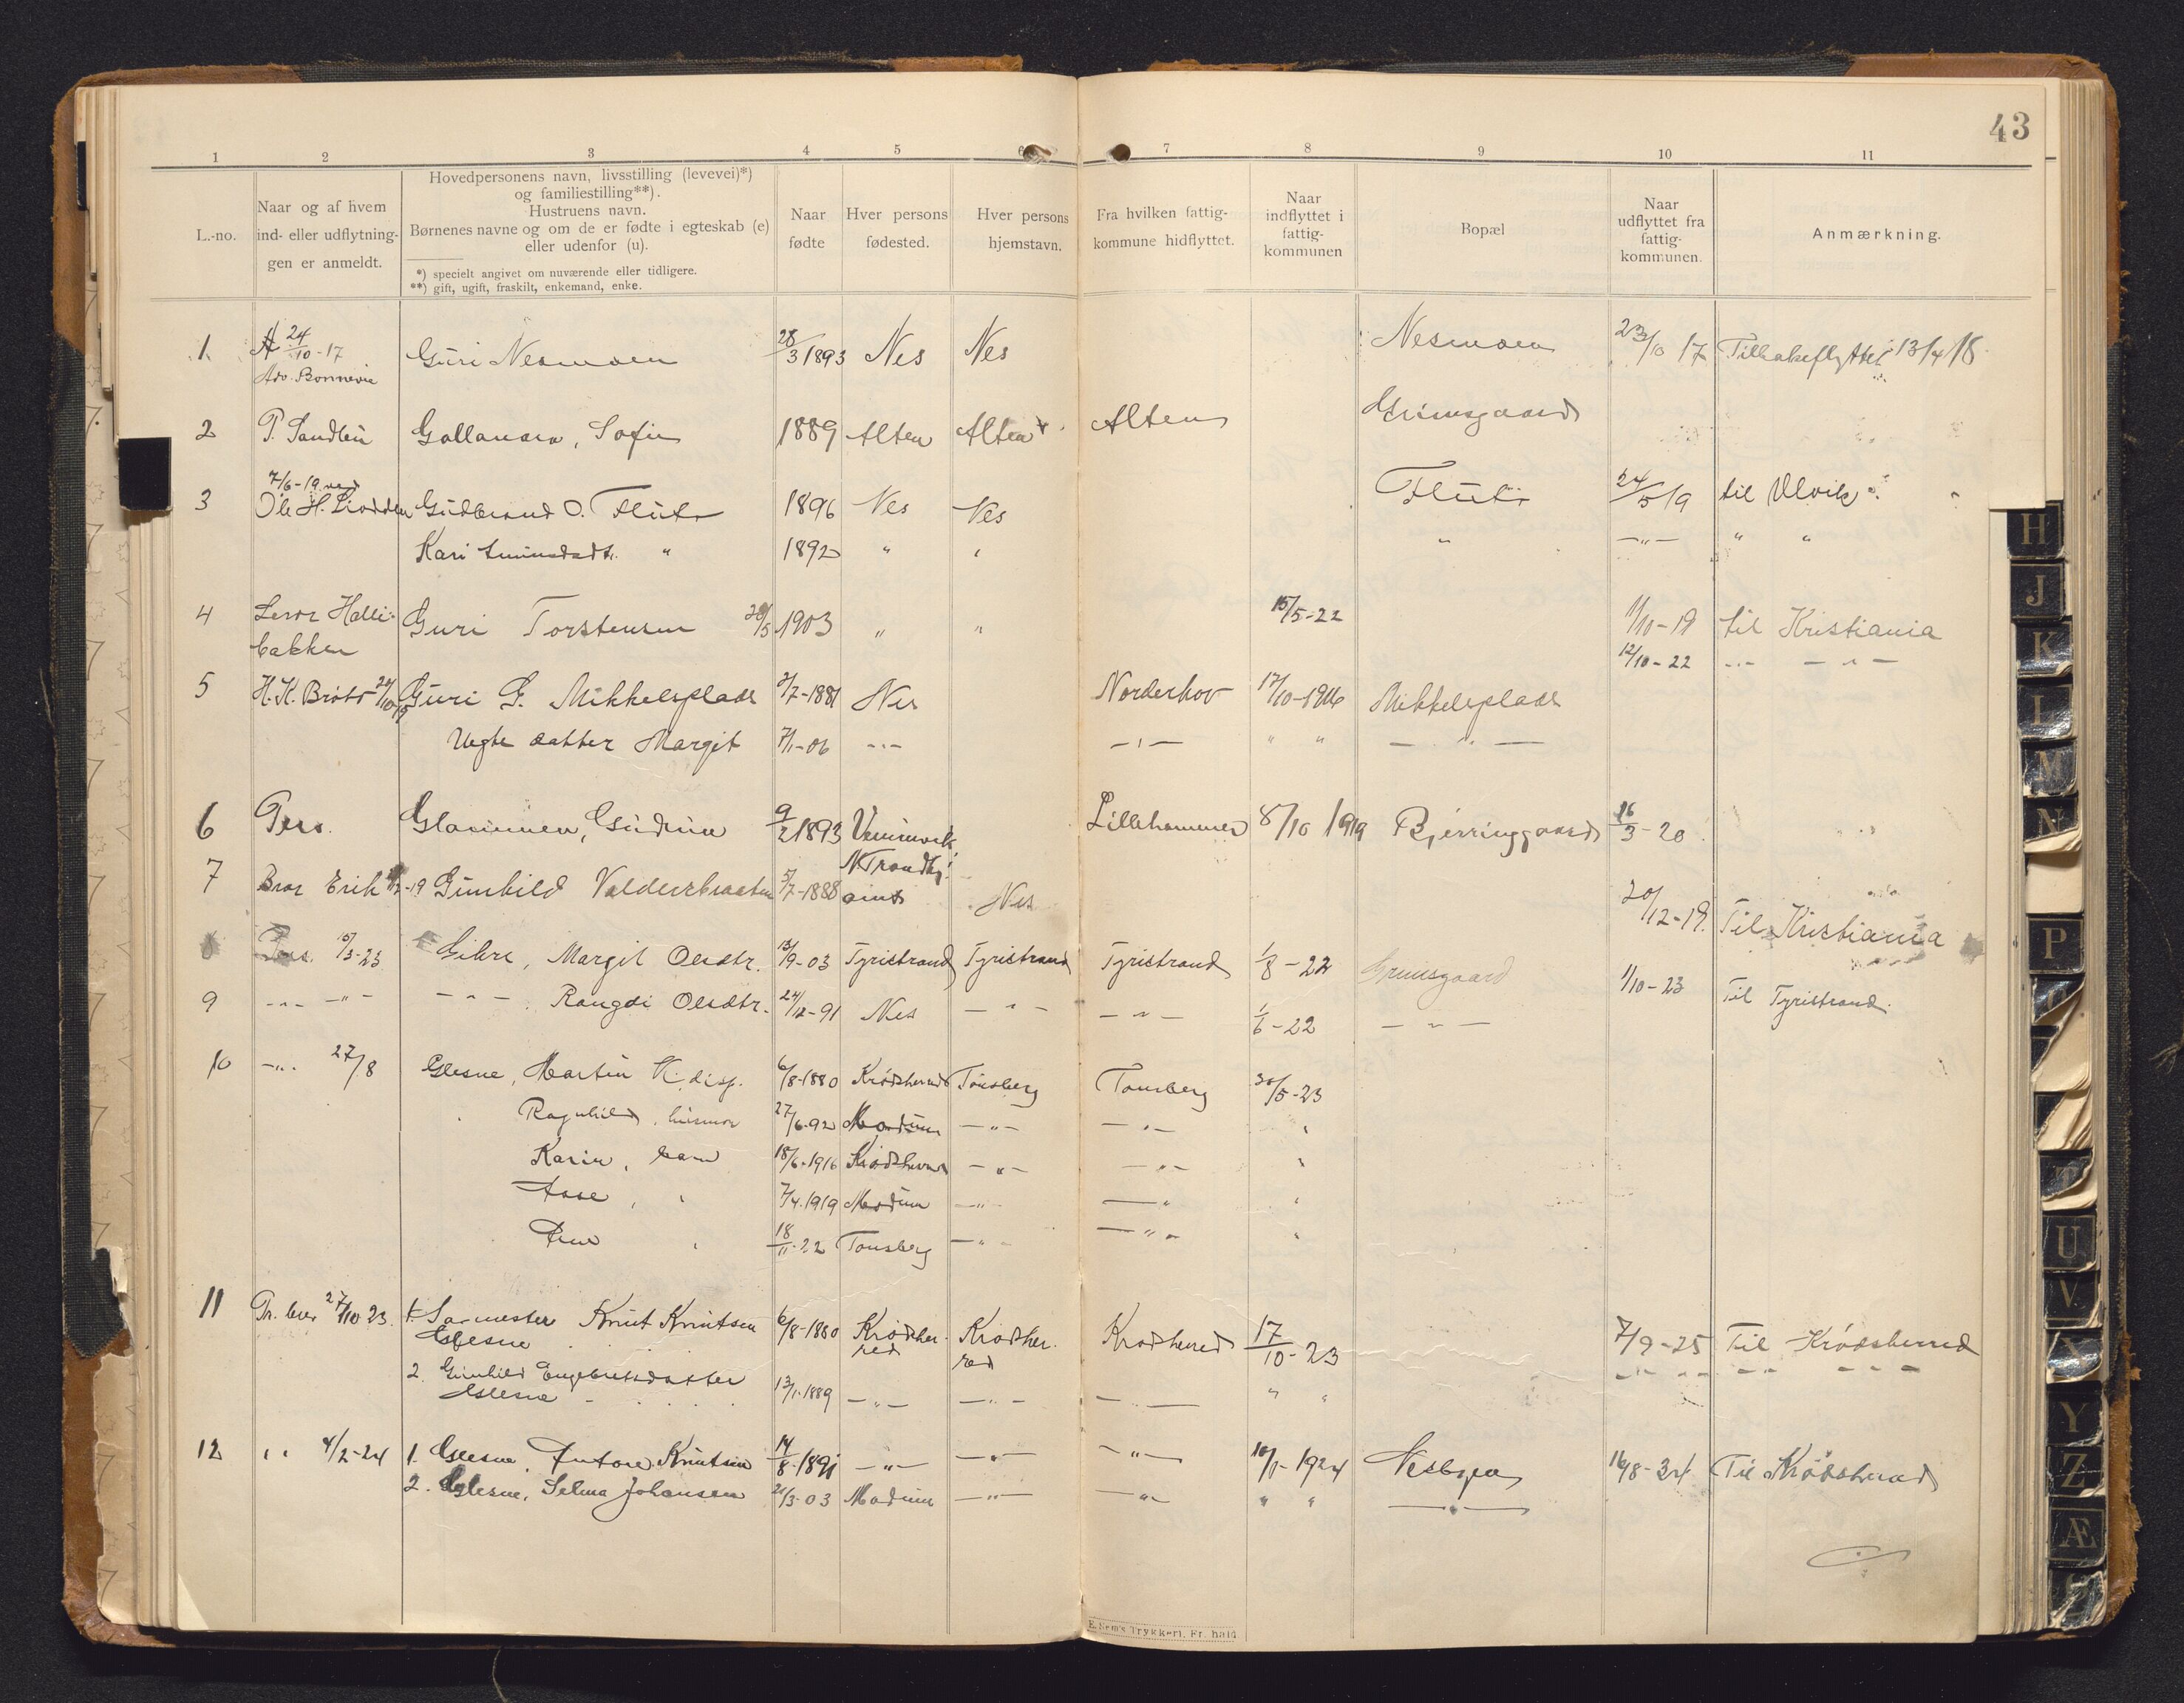 43
1 2 3 4 5 6 7 8 9 10 11
L.-no.
Naar og af hvem
ind- eller udflytnin-
gen er anmeldt.
Hovedpersonens navn, livsstilling (levevei)*)
og familiestilling**).
Hustruens navn.
Børnenes navne og om de er fødte i egteskab (e)
eller udenfor (u).
*) specielt angivet om nuværende eller tidligere.
**) gift, ugift, fraskilt, enkemand, enke.
Naar
fødte
Hver persons
fødested.
Hver persons
hjemstavn.
Fra hvilken fattig-
kommune hidflyttet.
Naar
indflyttet i
fattig-
kommunen
Bopæl
Naar
udflyttet fra
fattig-
kommunen.
Anmærkning.
1 24/10-17 Guri Nesmoen 28/3 1893 Nes Nes Nesmoen 23/10 17 Tilbakeflyttet 13/4 18
Adv. Bonnevie
2 P. Sandlein Gallavara, Sofie 1889 Alten Alten Alten Grimsgaard
7/6-19 ved
3 Ole H. Gudbrand O. Flute 1896 Nes Nes Flute 24/5 19 til Ulvik
Kari " 1892 " " " —"— " "
4 Guri Torstensen 20/5 1903 " " 15/5-22 1/10-19 til Kristiania
bakken 12/10-22 -"- -"-
5 H. K. Guri G. Mikkelsplads 2/7-1881 Nes Norderhov 17/10-1916 Mikkelsplads
Uegte datter Margit 7/1-06 -"- -"- " " —"—
6 Pers. Glommen, Gudrun 9/2 1893 Lillehammer 8/10 1919 Bjerringgaard 16/3-20
N Trondhj.
7 Bror Erik Gunhild Valdersbraaten 5/7-1888 amt Nes 20/12-19. Til Kristiania
8 Pers. 15/3-23 Margit Olsdtr. 13/9-03 Tyristrand Tyristrand Tyristrand 1/8-22 Grimsgaard
9 -"- -"- -"- Rangdi Olsdtr. 24/12-91 Nes -"- -"- 1/6-22 -"- 1/10-23 Til Tyristrand.
10 -"- 27/8 Glesne, Martin K. disp. 6/8-1880 Krødsherad Tønsberg Tønsberg 30/5-23
Ragnhild, husmor 27/6.92 Modum -"- -"- "
Karin, barn 18/6-1916 Krødsherad -"- -"- "
Aase, " 7/4.1919 Modum -"- -"- "
" 18/11-22 Tønsberg -"- -"- "
11 27/10 23. 1. Knut Knutsen 6/8-1880 Krødsher- Krødsher- Krødsherred 17/10-23 7/9-25 Til Krødsherred
Glesne red red
2. Gunhild Engebretsdatter
Glesne 13/1-1889 -"- -"- -"- " " -"- -"- -"-
12 " 4/2-24 1. Glesne, Antore Knutsen 14/8-1891 -"- -"- -"- 10/1-1924 Nesbyen 16/8-34 Til Krødsherad
2. Glesne, Selma Johansen 21/3-03 Modum -"- -"- " " -"-
E. Sem's Trykkeri, Fr. hald
H
J
K
L
M
N
P
T
U
V
X
Y
Z
Æ